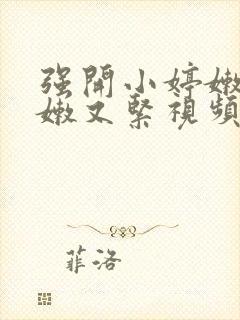 强開小婷嫩
嫩又緊視頻
菲洛